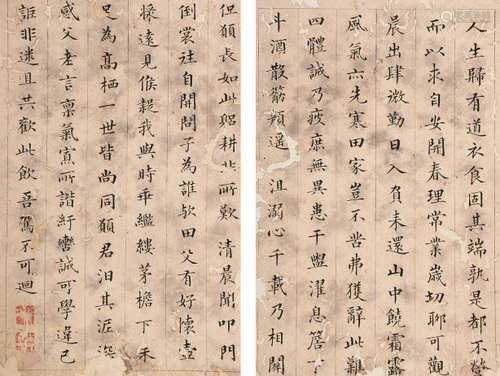 人生歸有道衣食固其端孰是都不營
而以求自安開春理常業歲功聊可觀
晨出肆微勤日入負耒還山中饒霜露
風氣亦先寒田家豈不苦弗獲辭此難
四體誠乃疲庶無異患干盥濯息簷下
斗酒散筋顏遥沮溺心千載乃相關
但願長如此躬耕非所歎清晨聞叩門
倒裳往自開問子為誰歟田父有好懷壺
漿遠見候疑我與時乖繿縷茅檐下未
足為高栖一世皆尚同願君汩其泥深
感父老言稟氣寡所諧紆轡誠可學違己
詎非迷且共歡此飲吾駕不可迴